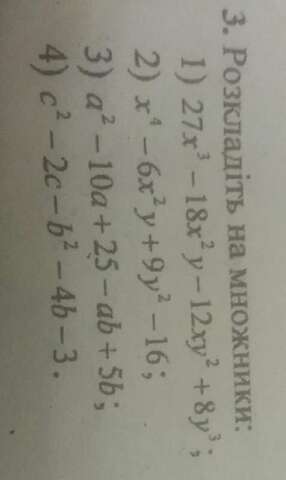 3. Розкладіть на множники:
1) 27x³ – 18x²y – 12xy² + 8y³;
2) x⁴ – 6x²y + 9y² – 16;
3) a² – 10a + 25 – ab + 5b;
4) c² – 2c – b² – 4b – 3.